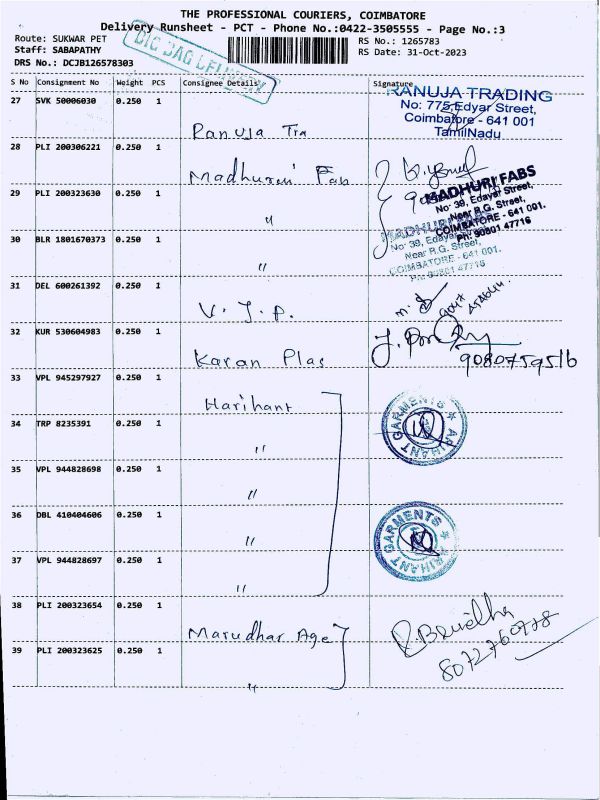 THE PROFESSIONAL COURIERS, COIMBATORE
Delivery Runsheet - PCT - Phone No.:0422-3505555 - Page No.:3
Route: SUKWAR PET
RS No.: 1265783
Staff: SABAPATHY
RS Date: 31-Oct-2023
DRS No.: DCJB126578303
BIG BAG DELIVERY
S No Consignment No Weight PCS Consignee Details Signature
27 SVK 50006030 0.250 1
Ranuja Tra
RANUJA TRADING
No: 775, Edyar Street,
Coimbatore - 641 001
TamilNadu
28 PLI 200306221 0.250 1
Madhuri Fab
29 PLI 200323630 0.250 1
"
MADHURI FABS
No: 39, Edayar Street,
Near R.G. Street,
COIMBATORE - 641 001.
Ph: 90801 47716
MADHURI FABS
No: 39, Edayar Street,
Near R.G. Street,
COIMBATORE - 641 001.
Ph: 90801 47716
30 BLR 1801670373 0.250 1
"
31 DEL 600261392 0.250 1
V. J. P.
32 KUR 530604983 0.250 1
Karan Plas
9080759516
33 VPL 945297927 0.250 1
Harihant
34 TRP 8235391 0.250 1
"
ARIHANT GARMENTS
35 VPL 944828698 0.250 1
"
36 DBL 410404606 0.250 1
"
ARIHANT GARMENTS
37 VPL 944828697 0.250 1
"
38 PLI 200323654 0.250 1
Marudhar Age
8072760978
39 PLI 200323625 0.250 1
"